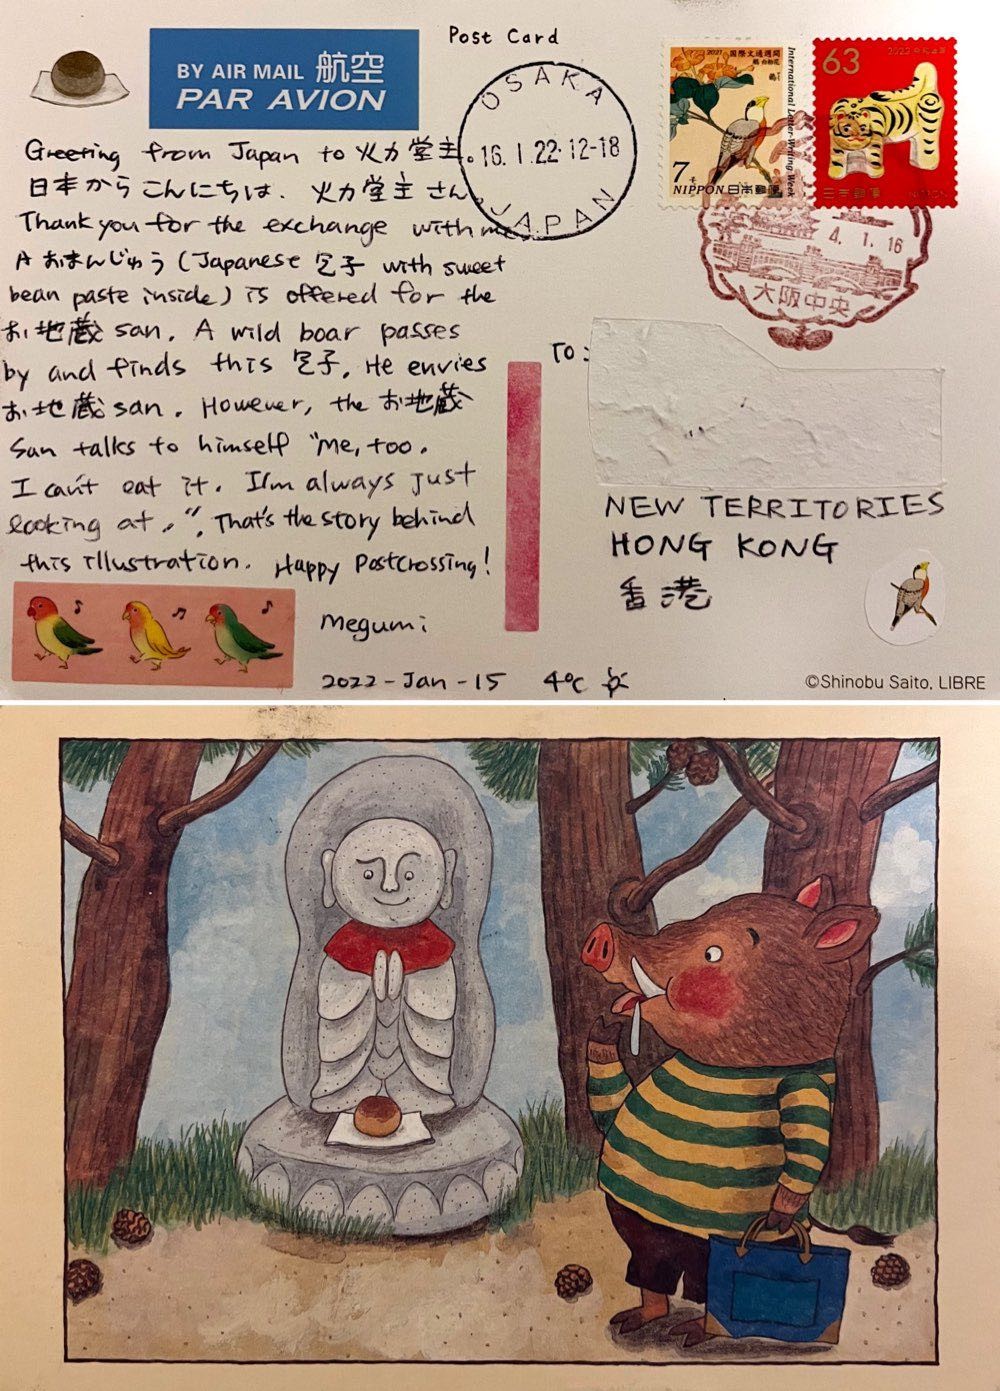 BY AIR MAIL 航空
PAR AVION
Post Card
OSAKA
16.1.22.12-18
JAPAN
2021 国際文通週間
International Letter-Writing Week
7
NIPPON 日本郵便
63
日本郵便 NIPPON
4.1.16
大阪中央
Greeting from Japan to 火力堂主。
日本からこんにちは、火力堂主さん。
Thank you for the exchange with me.
A おまんじゅう (Japanese 包子 with sweet
bean paste inside) is offered for the
お地蔵 san. A wild boar passes
by and finds this 包子. He envies
お地蔵 san. However, the お地蔵
san talks to himself "Me, too.
I can't eat it. I'm always just
looking at.". That's the story behind
this illustration. Happy Postcrossing!
Megumi
2022-Jan-15 4℃
To:
NEW TERRITORIES
HONG KONG
香港
©Shinobu Saito, LIBRE